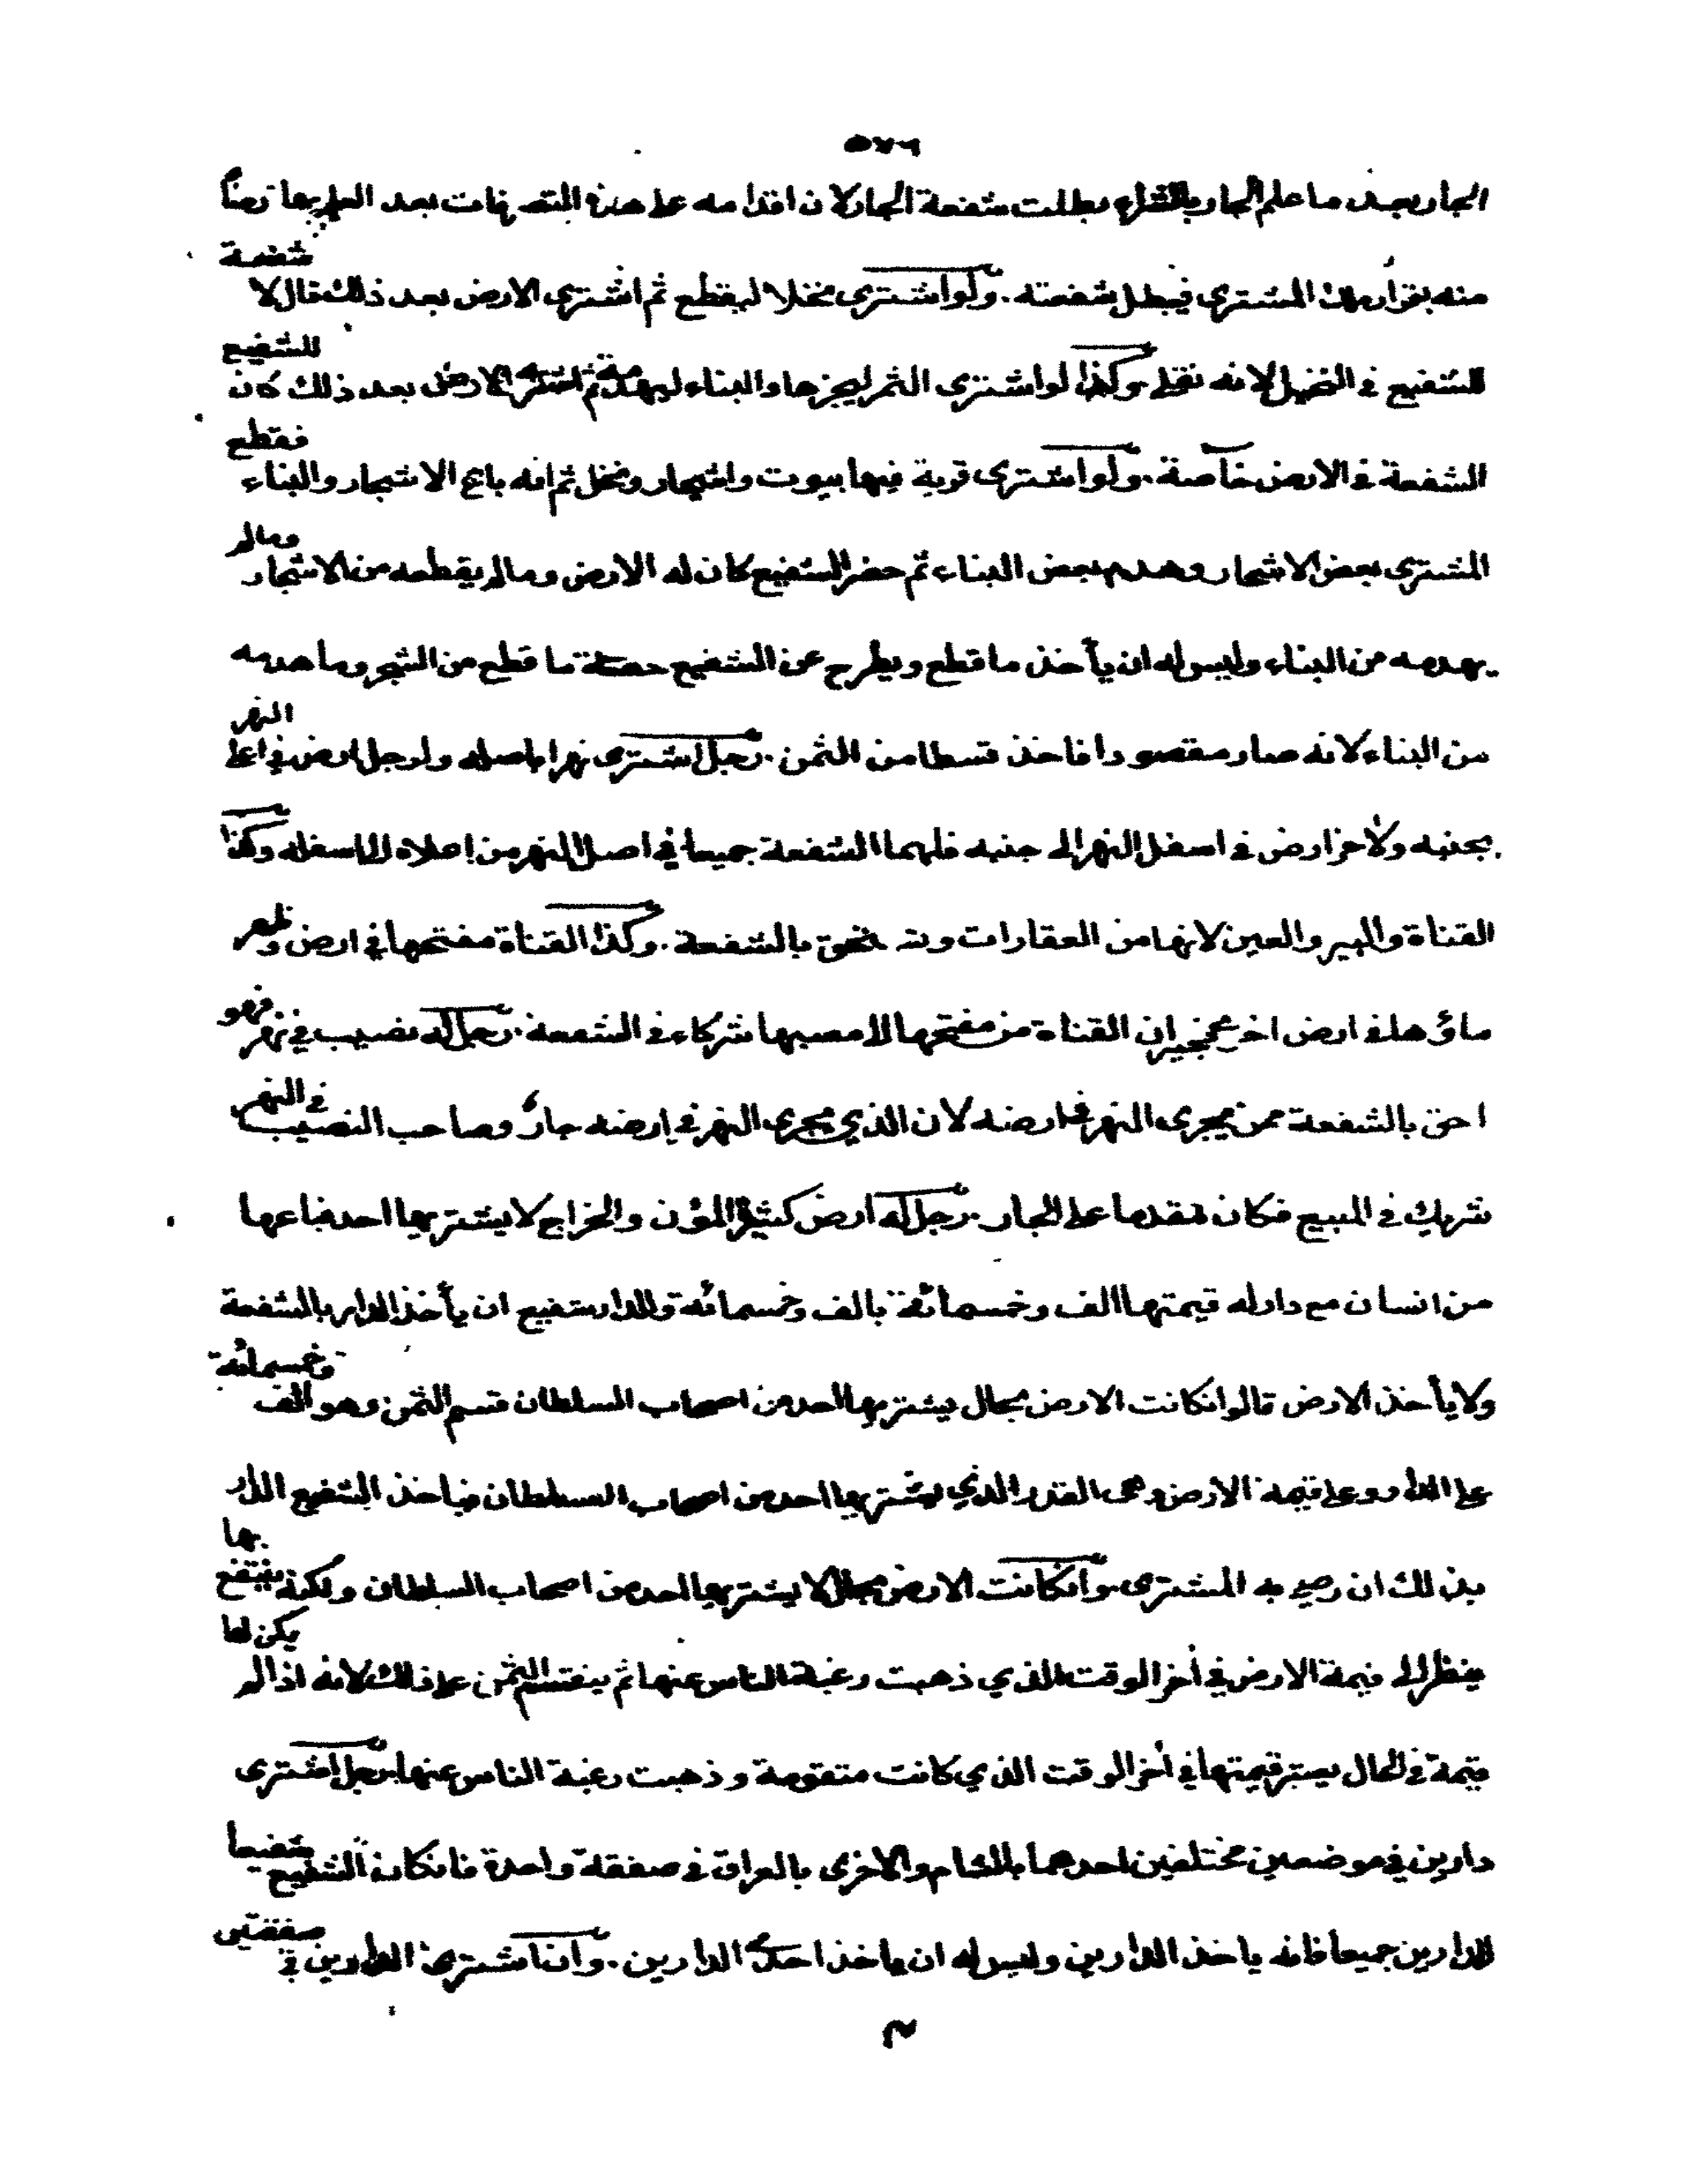 ٥٧٦
الجار بعد ما علم الجار بالشراء بطلت شفعة الجار لان اقدامه على هذه التصرفات بعد العلم بها رضًا
منه بقرار ملك المشتري فيبطل شفعته . ولو اشترى نخلا ليقطع ثم اشترى الارض بعد ذلك قال لا شفعة
للشفيع في النخيل لانه نقلي وكذا لو اشترى الثمر ليجزها والبناء ليهدمه ثم اشترى الارض بعد ذلك كان للشفيع
الشفعة في الارض خاصة . ولو اشترى قرية فيها بيوت واشجار ونخل ثم انه باع الاشجار والبناء فقطع
المشتري بعض الاشجار وهدم بعض البناء ثم حضر الشفيع كان له الارض وما لم يقطعه من الاشجار وما لم
يهدمه من البناء وليس له ان يأخذ ما قطع ويطرح عن الشفيع حصة ما قطع من الشجر وما هدمه
من البناء لانه صار مقصودا فاخذ قسطا من الثمن . رجل اشترى نهرا باصله ولرجل ارض في اعلى النهر
بجنبه ولآخر ارض في اسفل النهر الى جنبه فلهما الشفعة جميعا في اصل النهر من اعلاه الى اسفله وكذا
القناة والبير والعين لانها من العقارات و تستحق بالشفعة . وكذا القناة مفتحها في ارض وظهر
ماؤها في ارض اخرى فجيران القناة من مفتحها الى مصبها شركاء في الشفعة . رجل له نصيب في نهر فهو
احق بالشفعة ممن يجرى النهر في ارضه لان الذي يجري النهر في ارضه جارٌ وصاحب النصيب في النهر
شريك في المبيع فكان مقدما على الجار . رجل له ارض كثيرة المؤن والخراج لا يشتريها احد فباعها
من انسان مع دار له قيمتها الف وخمسمائة بالف وخمسمائة وللدار شفيع ان يأخذ الدار بالشفعة
ولا يأخذ الارض قالوا ان كانت الارض بحال يشتريها احد من اصحاب السلطان قسم الثمن وهو الف وخمسمائة
على الدار وعلى قيمة الارض وهي القدر الذي يشتريها احد من اصحاب السلطان فياخذ الشفيع الدار
بذلك ان رضي به المشتري وان كانت الارض بحال لا يشتريها احد من اصحاب السلطان ولكنه ينتفع بها
ينظر الى قيمة الارض في آخر الوقت الذي ذهبت رغبة الناس عنها ثم ينقسم الثمن على ذلك لانه اذا لم يكن لها
قيمة في الحال يعتبر قيمتها في آخر الوقت الذي كانت متقومة و ذهبت رغبة الناس عنها رجل اشترى
دارين في موضعين مختلفين احدهما بالشام والاخرى بالعراق في صفقة واحدة فان كان الشفيع شفيعا
للدارين جميعا فانه ياخذ الدارين وليس له ان ياخذ احدى الدارين . وان اشترى الدارين في صفقتين